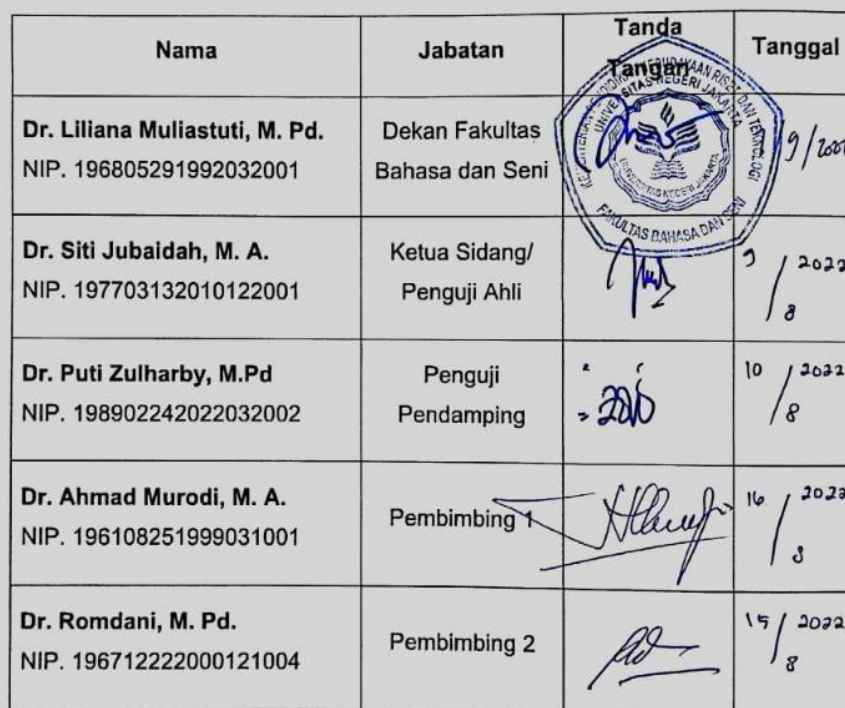 Nama Jabatan Tanda Tangan Tanggal
Dr. Liliana Muliastuti, M. Pd.
NIP. 196805291992032001
Dekan Fakultas
Bahasa dan Seni
UNIVERSITAS NEGERI JAKARTA
UNIVERSITAS NEGERI JAKARTA
FAKULTAS BAHASA DAN SENI
9/2022
Dr. Siti Jubaidah, M. A.
NIP. 197703132010122001
Ketua Sidang/
Penguji Ahli
9/8 2022
Dr. Puti Zulharby, M.Pd
NIP. 198902242022032002
Penguji
Pendamping
10/8 2022
Dr. Ahmad Murodi, M. A.
NIP. 196108251999031001
Pembimbing 1
16/8 2022
Dr. Romdani, M. Pd.
NIP. 196712222000121004
Pembimbing 2
15/8 2022